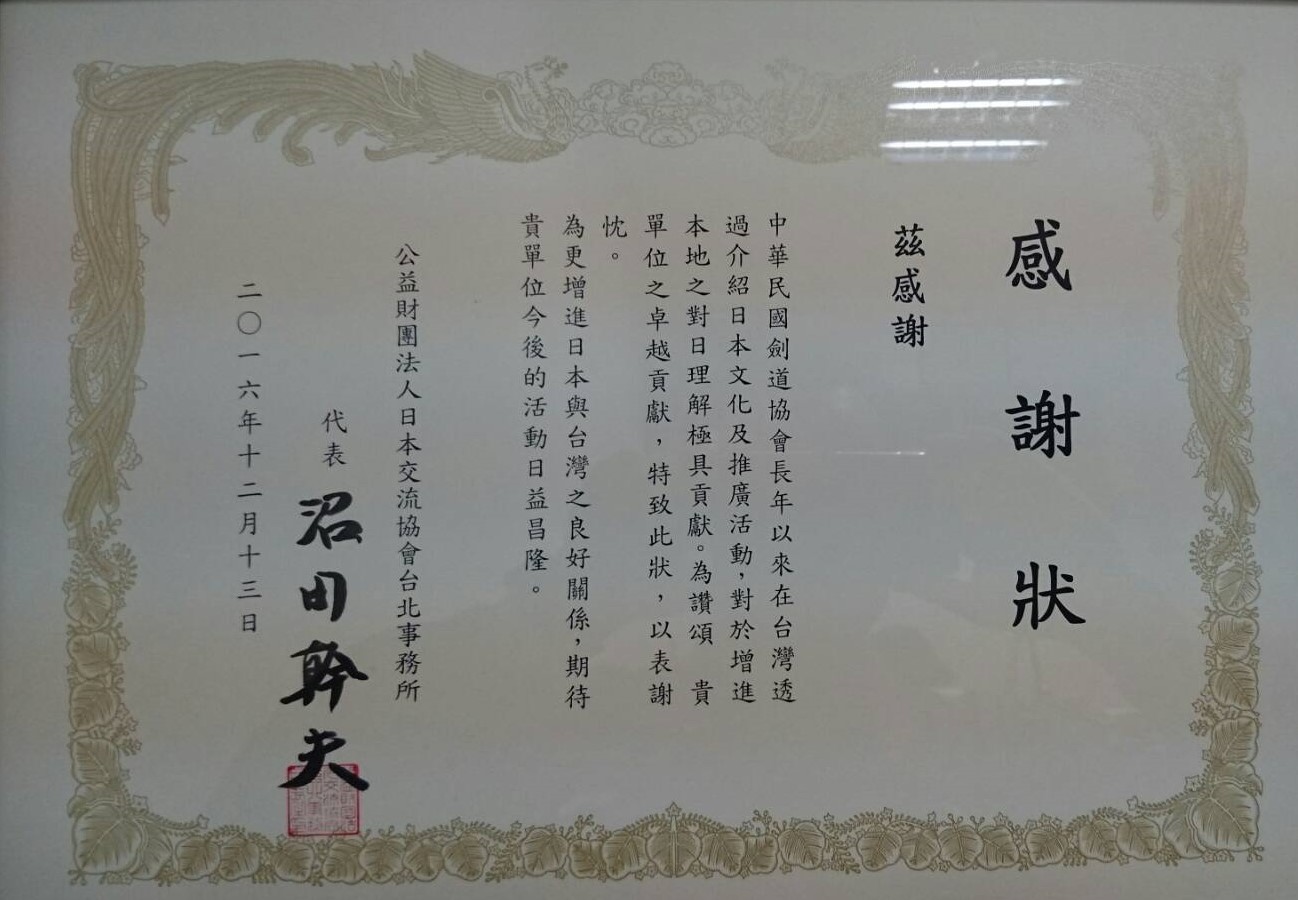 感謝狀
茲感謝
中華民國劍道協會長年以來在台灣透
過介紹日本文化及推廣活動，對於增進
本地之對日理解極具貢獻。為讚頌　貴
單位之卓越貢獻，特致此狀，以表謝
忱。
為更增進日本與台灣之良好關係，期待
貴單位今後的活動日益昌隆。
公益財團法人日本交流協會台北事務所
代表 沼田幹夫
二〇一六年十二月十三日